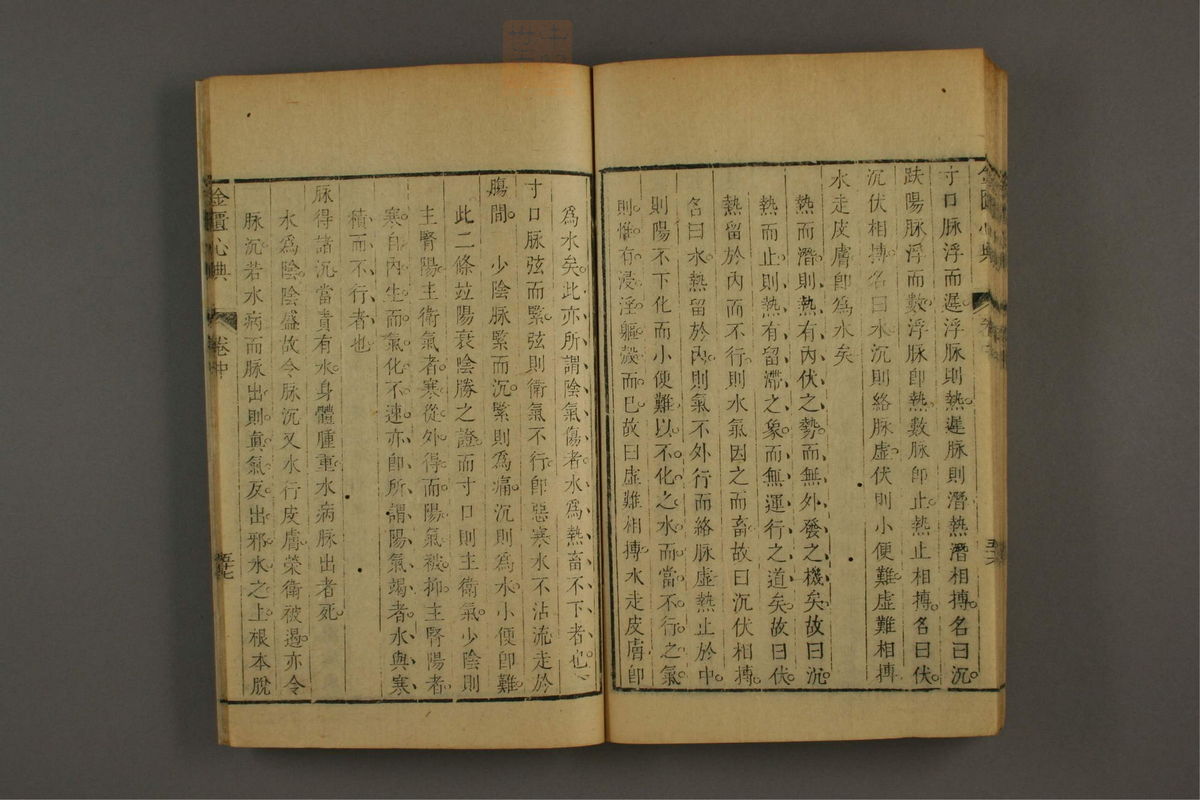 寸口脉浮而遲浮脉則熱遲脉則潛熱潛相搏名曰沉
趺陽脉浮而數浮脉卽熱數脉卽止熱止相搏名曰伏
沉伏相搏名曰水沉則絡脉虛伏則小便難虛難相搏
水走皮膚卽為水矣
熱而潛則熱有內伏之勢而無外發之機矣故曰沉
熱而止則熱有留滯之象而無運行之道矣故曰伏
熱留於內而不行則水氣因之而畜故曰沉伏相搏
名曰水熱留於內則氣不外行而絡脉虛熱止於中
則陽不下化而小便難以不化之水而當不行之氣
則惟有浸淫軀殼而已故曰虛難相搏水走皮膚卽
為水矣此亦所謂陰氣傷者水為熱畜不下者也
寸口脉弦而緊弦則衛氣不行卽惡寒水不沾流走於
腸間 少陰脉緊而沉緊則為痛沉則為水小便卽難
此二條竝陽衰陰勝之證而寸口則主衛氣少陰則
主腎陽主衛氣者寒從外得而陽氣被抑主腎陽者
寒自內生而氣化不速亦卽所謂陽氣竭者水與寒
積而不行者也
脉得諸沉當責有水身體腫重水病脉出者死
水為陰陰盛故令脉沉又水行皮膚榮衛被遏亦令
脉沉若水病而脉出則真氣反出邪水之上根本脫
金匱心典
卷中
五十七